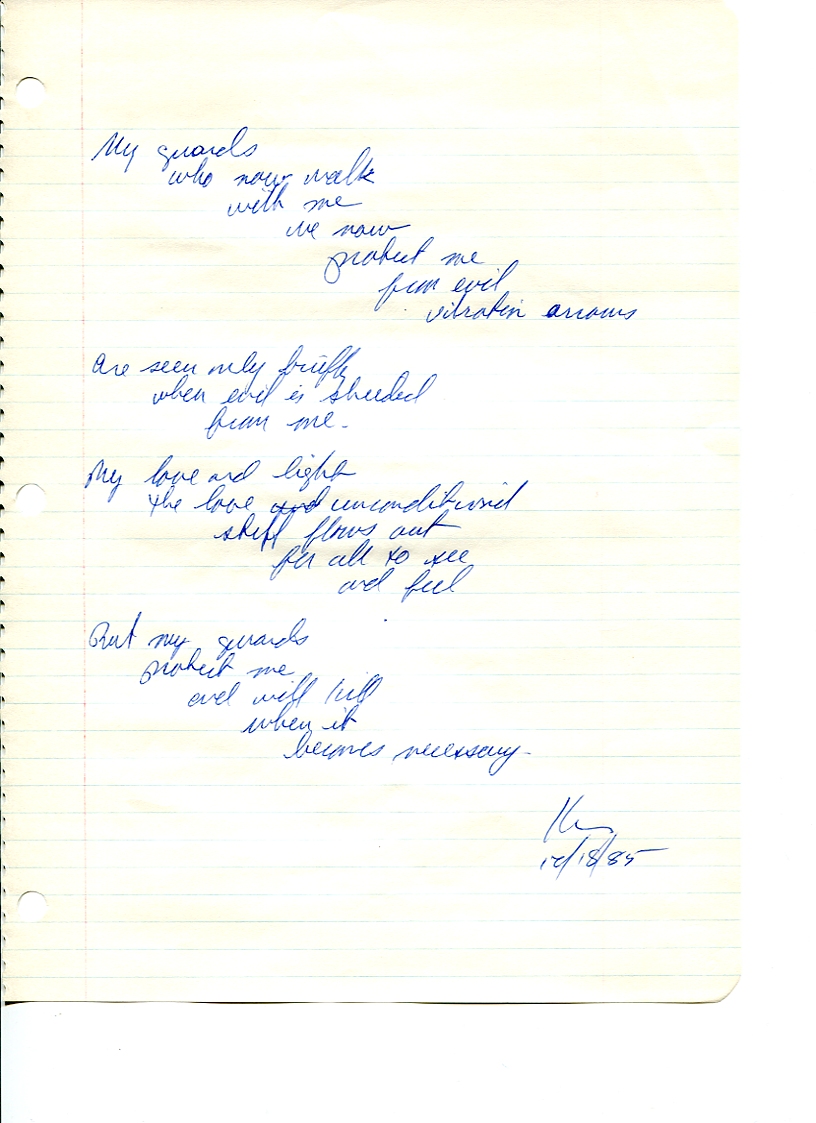 My guards
who now walk
with me
we now
protect me
from evil
vibration arrows
are seen only briefly
when evil is shielded
from me.
My love and light
the love and unconditional
stuff flows out
for all to see
and feel
But my guards
protect me
and will kill
when it
becomes necessary.
10/18/85